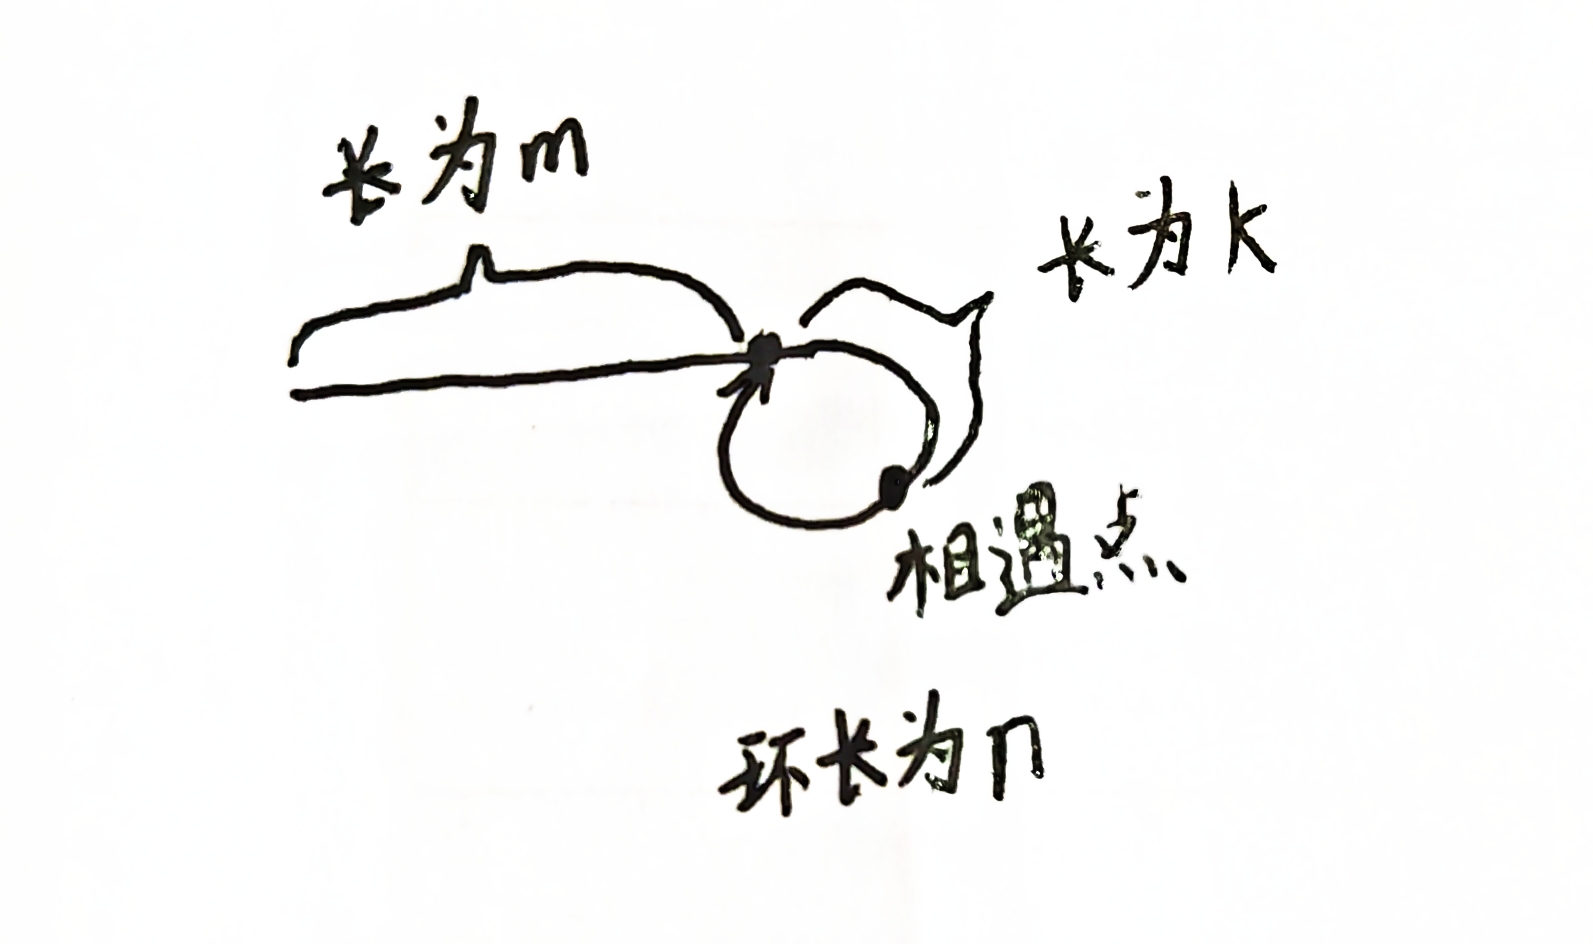 长为m
长为k
相遇点
环长为n